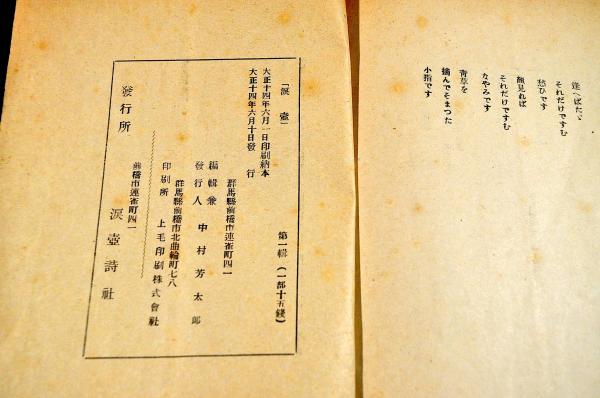 逢へばたゞ
それだけですむ
愁ひです
顔見れば
それだけですむ
なやみです
青草を
摘んでそまつた
小指です
「涙壺」
第一輯（一部十五錢）
大正十四年六月一日印刷納本
大正十四年六月十日發行
群馬縣前橋市連雀町四一
編輯兼
發行人 中村芳太郎
群馬縣前橋市北曲輪町七八
印刷所 上毛印刷株式會社
前橋市連雀町四一
發行所 涙壺詩社